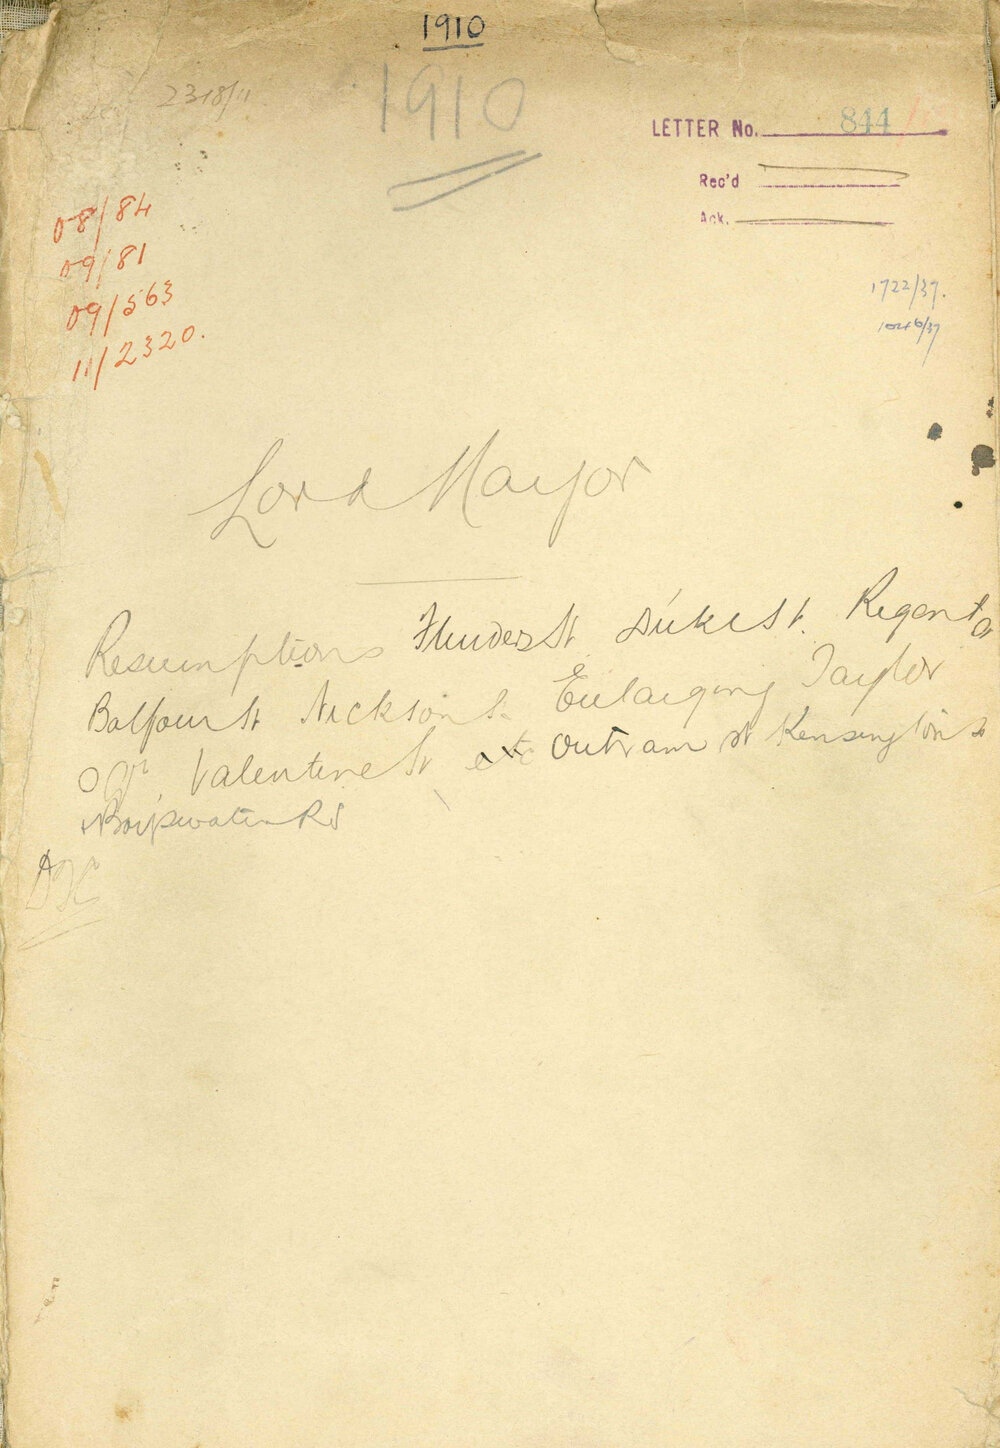 1910
1910
2318/11
LETTER No. 844
Rec'd
Ack.
08/84
09/81
09/563
11/2320.
1722/37.
1046/37
Lord Mayor
Resumptions Flinders St Duke St. Regent St
Balfour St Nickson St Enlarging Taylor
Sqr. Valentine St etc Outram St Kensington St
Rd